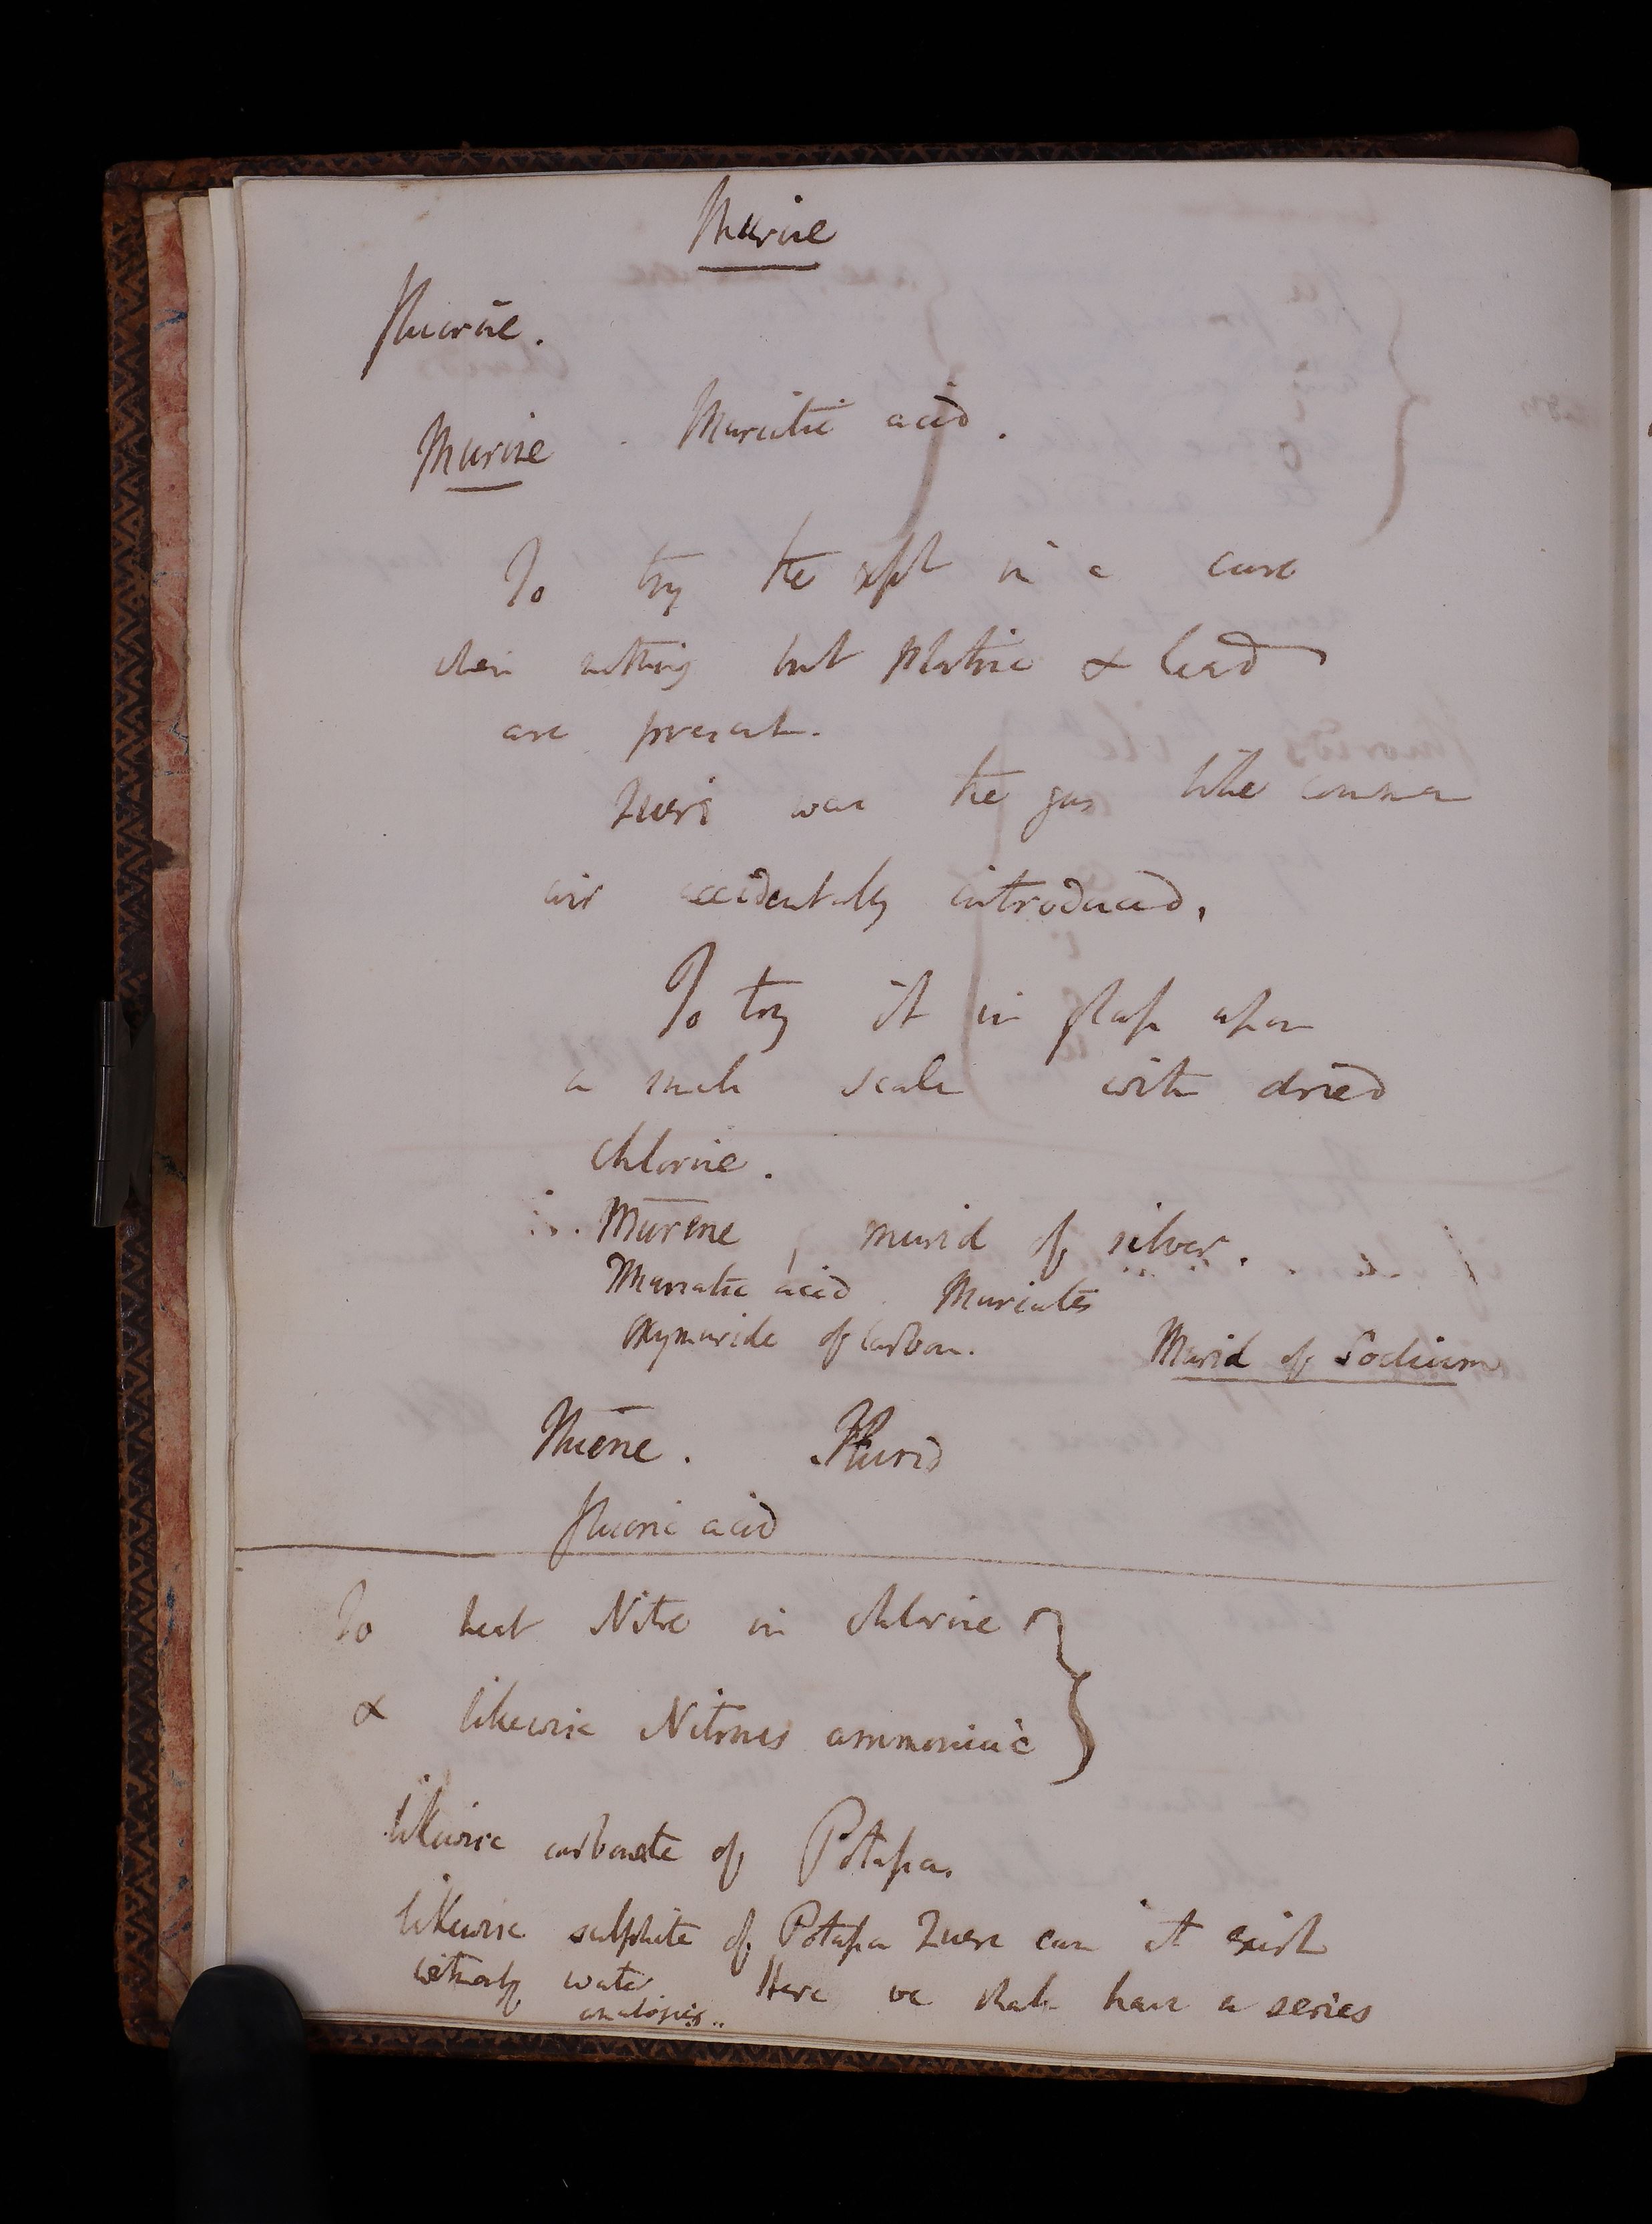 Murine
fluorine.
Murine . Muriatic acid.
To try the expt in a case
when nothing but Platina & lead
are present.
Quere was the gas like common
air accidentally introduced.
To try it in glass upon
a small scale with dried
chlorine.
Murene , murid of silver.
Muriatic acid Muriates
Oxymuride of Carbon.
Murid of Sodium
fluene . Flurid
fluoric acid
To heat Nitre in chlorine
& likewise Nitrous ammoniac
likewise carbonate of Potassa.
likewise sulphite of Potassa Quere can it exist
without water Here we shall have a series
analogies..